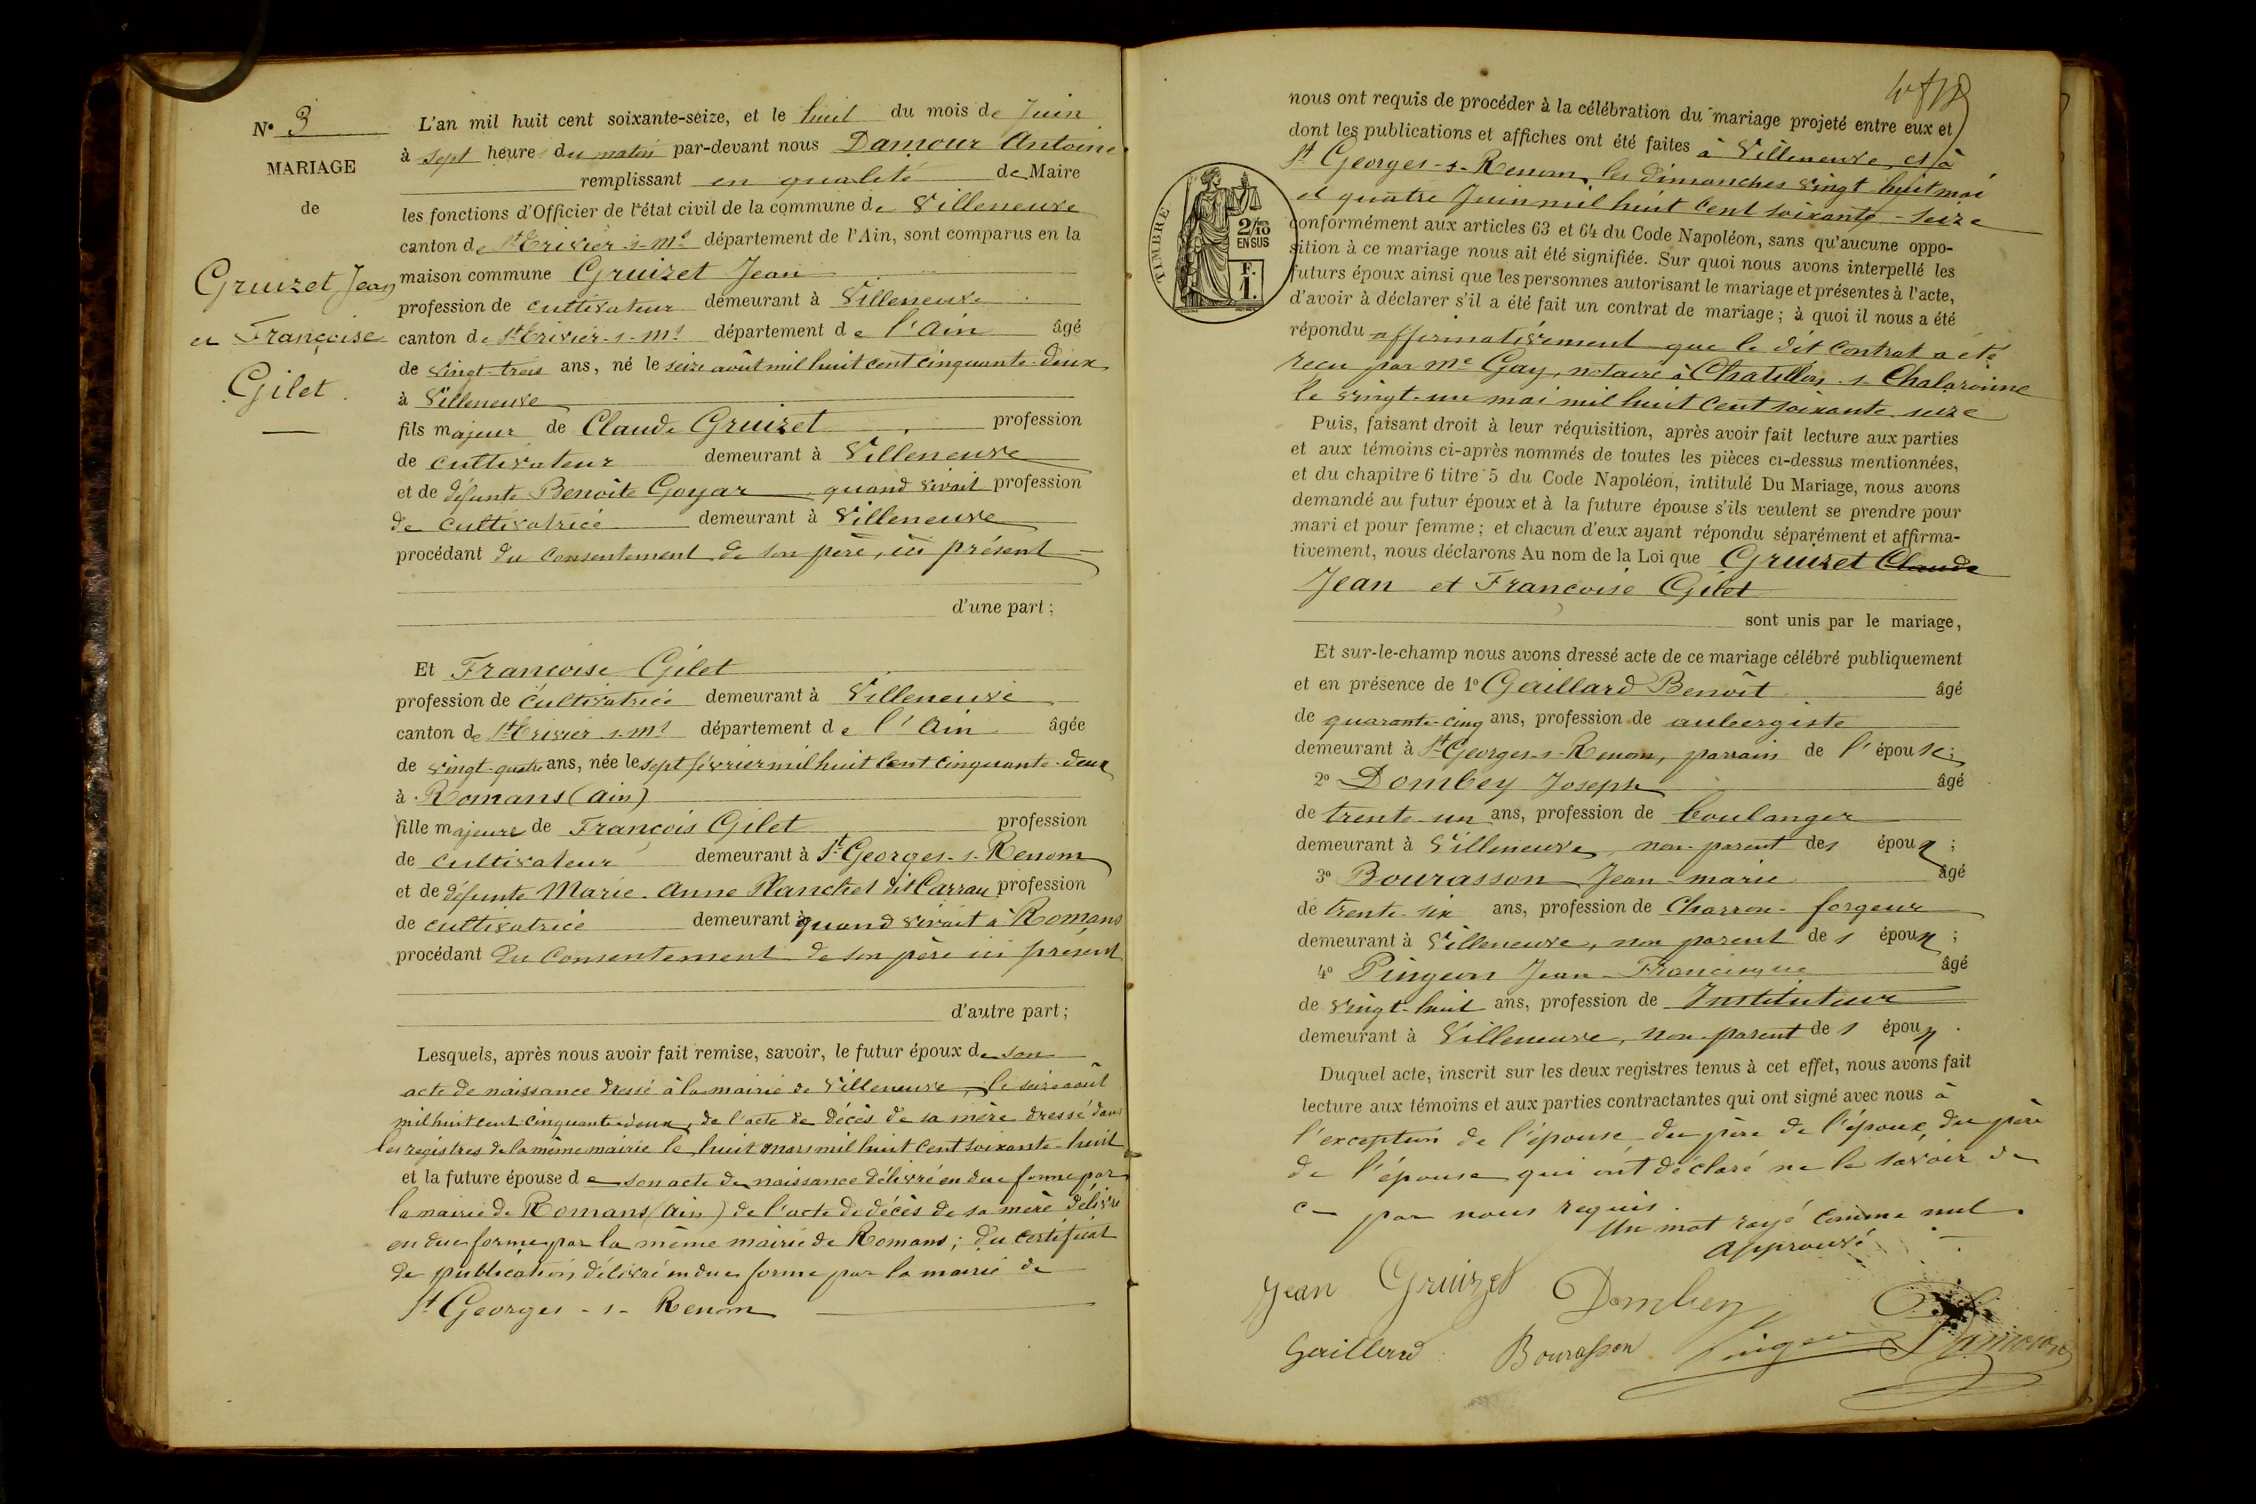 N° 3
MARIAGE
de
Gruizet Jean
et Françoise
Gilet.
L'an mil huit cent soixante-seize, et le huit du mois de Juin
à sept heures du matin par-devant nous Damour Antoine
remplissant en qualité de Maire
les fonctions d'Officier de l'état civil de la commune de Villeneuve
canton de St Trivier-s-Mds département de l'Ain, sont comparus en la
maison commune Gruizet Jean
profession de cultivateur demeurant à Villeneuve
canton de St Trivier-s-Mds département de l'Ain âgé
de vingt-trois ans, né le seize août mil huit cent cinquante-deux
à Villeneuve
fils majeur de Claude Gruizet profession
de cultivateur demeurant à Villeneuve
et de défunte Benoîte Goyar quand vivait profession
de cultivatrice demeurant à Villeneuve
procédant du consentement de son père, ici présent
d'une part;
Et Françoise Gilet
profession de cultivatrice demeurant à Villeneuve
canton de St Trivier-s-Mds département de l'Ain âgée
de vingt-quatre ans, née le sept février mil huit cent cinquante-deux
à Romans (Ain)
fille majeure de François Gilet profession
de cultivateur demeurant à St Georges-s-Renom
et de défunte Marie-Anne Planchet dit Carrau profession
de cultivatrice demeurant à quand vivait à Romans
procédant du consentement de son père ici présent
d'autre part;
Lesquels, après nous avoir fait remise, savoir, le futur époux de son
acte de naissance dressé à la mairie de Villeneuve, le seize août
mil huit cent cinquante-deux, de l'acte de décès de sa mère dressé dans
les registres de la même mairie le huit mars mil huit cent soixante-huit
et la future épouse de son acte de naissance délivré en due forme par
la mairie de Romans (Ain) de l'acte de décès de sa mère délivré
en due forme par la même mairie de Romans; du certificat
de publication délivré en due forme par la mairie de
St Georges-s-Renom
nous ont requis de procéder à la célébration du mariage projeté entre eux et
dont les publications et affiches ont été faites à Villeneuve et à
St Georges-s-Renom, les dimanches vingt huit mai
et quatre Juin mil huit cent soixante-seize
conformément aux articles 63 et 64 du Code Napoléon, sans qu'aucune oppo-
sition à ce mariage nous ait été signifiée. Sur quoi nous avons interpellé les
futurs époux ainsi que les personnes autorisant le mariage et présentes à l'acte,
d'avoir à déclarer s'il a été fait un contrat de mariage; à quoi il nous a été
répondu affirmativement que le dit contrat a été
reçu par Me Gay, notaire à Chatillon-s-Chalaronne
le vingt-un mai mil huit cent soixante-seize
TIMBRE
2/10
EN SUS
F.
1.
Puis, faisant droit à leur réquisition, après avoir fait lecture aux parties
et aux témoins ci-après nommés de toutes les pièces ci-dessus mentionnées,
et du chapitre 6 titre 5 du Code Napoléon, intitulé Du Mariage, nous avons
demandé au futur époux et à la future épouse s'ils veulent se prendre pour
mari et pour femme; et chacun d'eux ayant répondu séparément et affirma-
tivement, nous déclarons Au nom de la Loi que Gruizet Claude
Jean et Françoise Gilet
sont unis par le mariage,
Et sur-le-champ nous avons dressé acte de ce mariage célébré publiquement
et en présence de 1° Gaillard Benoît âgé
de quarante-cinq ans, profession de aubergiste
demeurant à St Georges-s-Renom, parrain de l'épouse;
2° Dombey Joseph âgé
de trente-un ans, profession de boulanger
demeurant à Villeneuve, non parent des époux;
3° Bourasson Jean-Marie âgé
de trente-six ans, profession de Charron-forgeur
demeurant à Villeneuve, non parent des époux;
4° Pingeon Jean-Francisque âgé
de vingt-huit ans, profession de Instituteur
demeurant à Villeneuve, non parent des époux.
Duquel acte, inscrit sur les deux registres tenus à cet effet, nous avons fait
lecture aux témoins et aux parties contractantes qui ont signé avec nous à
l'exception de l'épouse du père de l'époux, du père
de l'épouse qui ont déclaré ne le savoir de
ce par nous requis.
Un mot rayé comme nul.
Approuvé
Jean Gruizet Dombey
Gaillard Bourasson Pingeon Damour